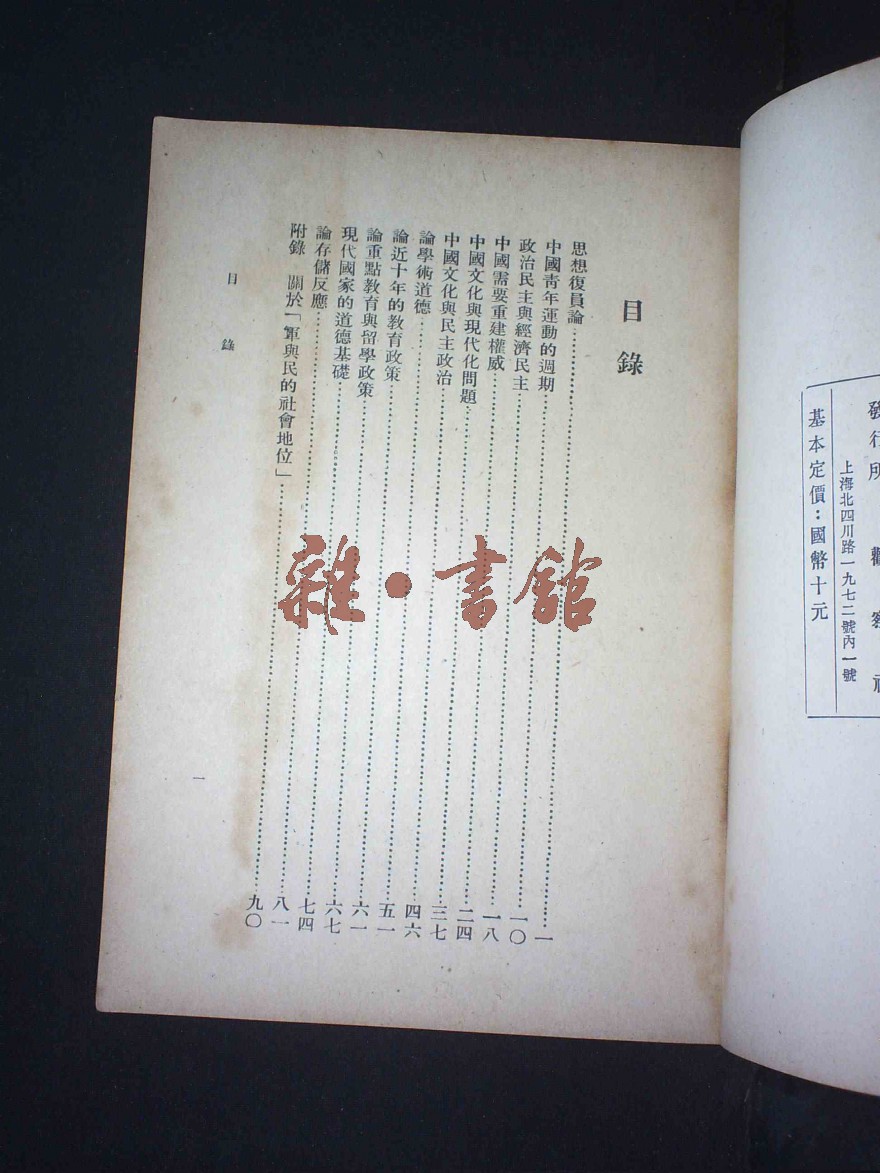 發行所 觀察社
上海北四川路一九七二號內一號
基本定價：國幣十元
目錄
思想復員論⋯⋯一
中國青年運動的週期⋯⋯一〇
政治民主與經濟民主⋯⋯一八
中國需要重建權威⋯⋯二四
中國文化與現代化問題⋯⋯三七
中國文化與民主政治⋯⋯四六
論學術道德⋯⋯五一
論近十年的教育政策⋯⋯六一
論重點教育與留學政策⋯⋯六七
現代國家的道德基礎⋯⋯七四
論存儲反應⋯⋯八一
附錄 關於「軍與民的社會地位」⋯⋯九〇
目錄 一
雜·書館